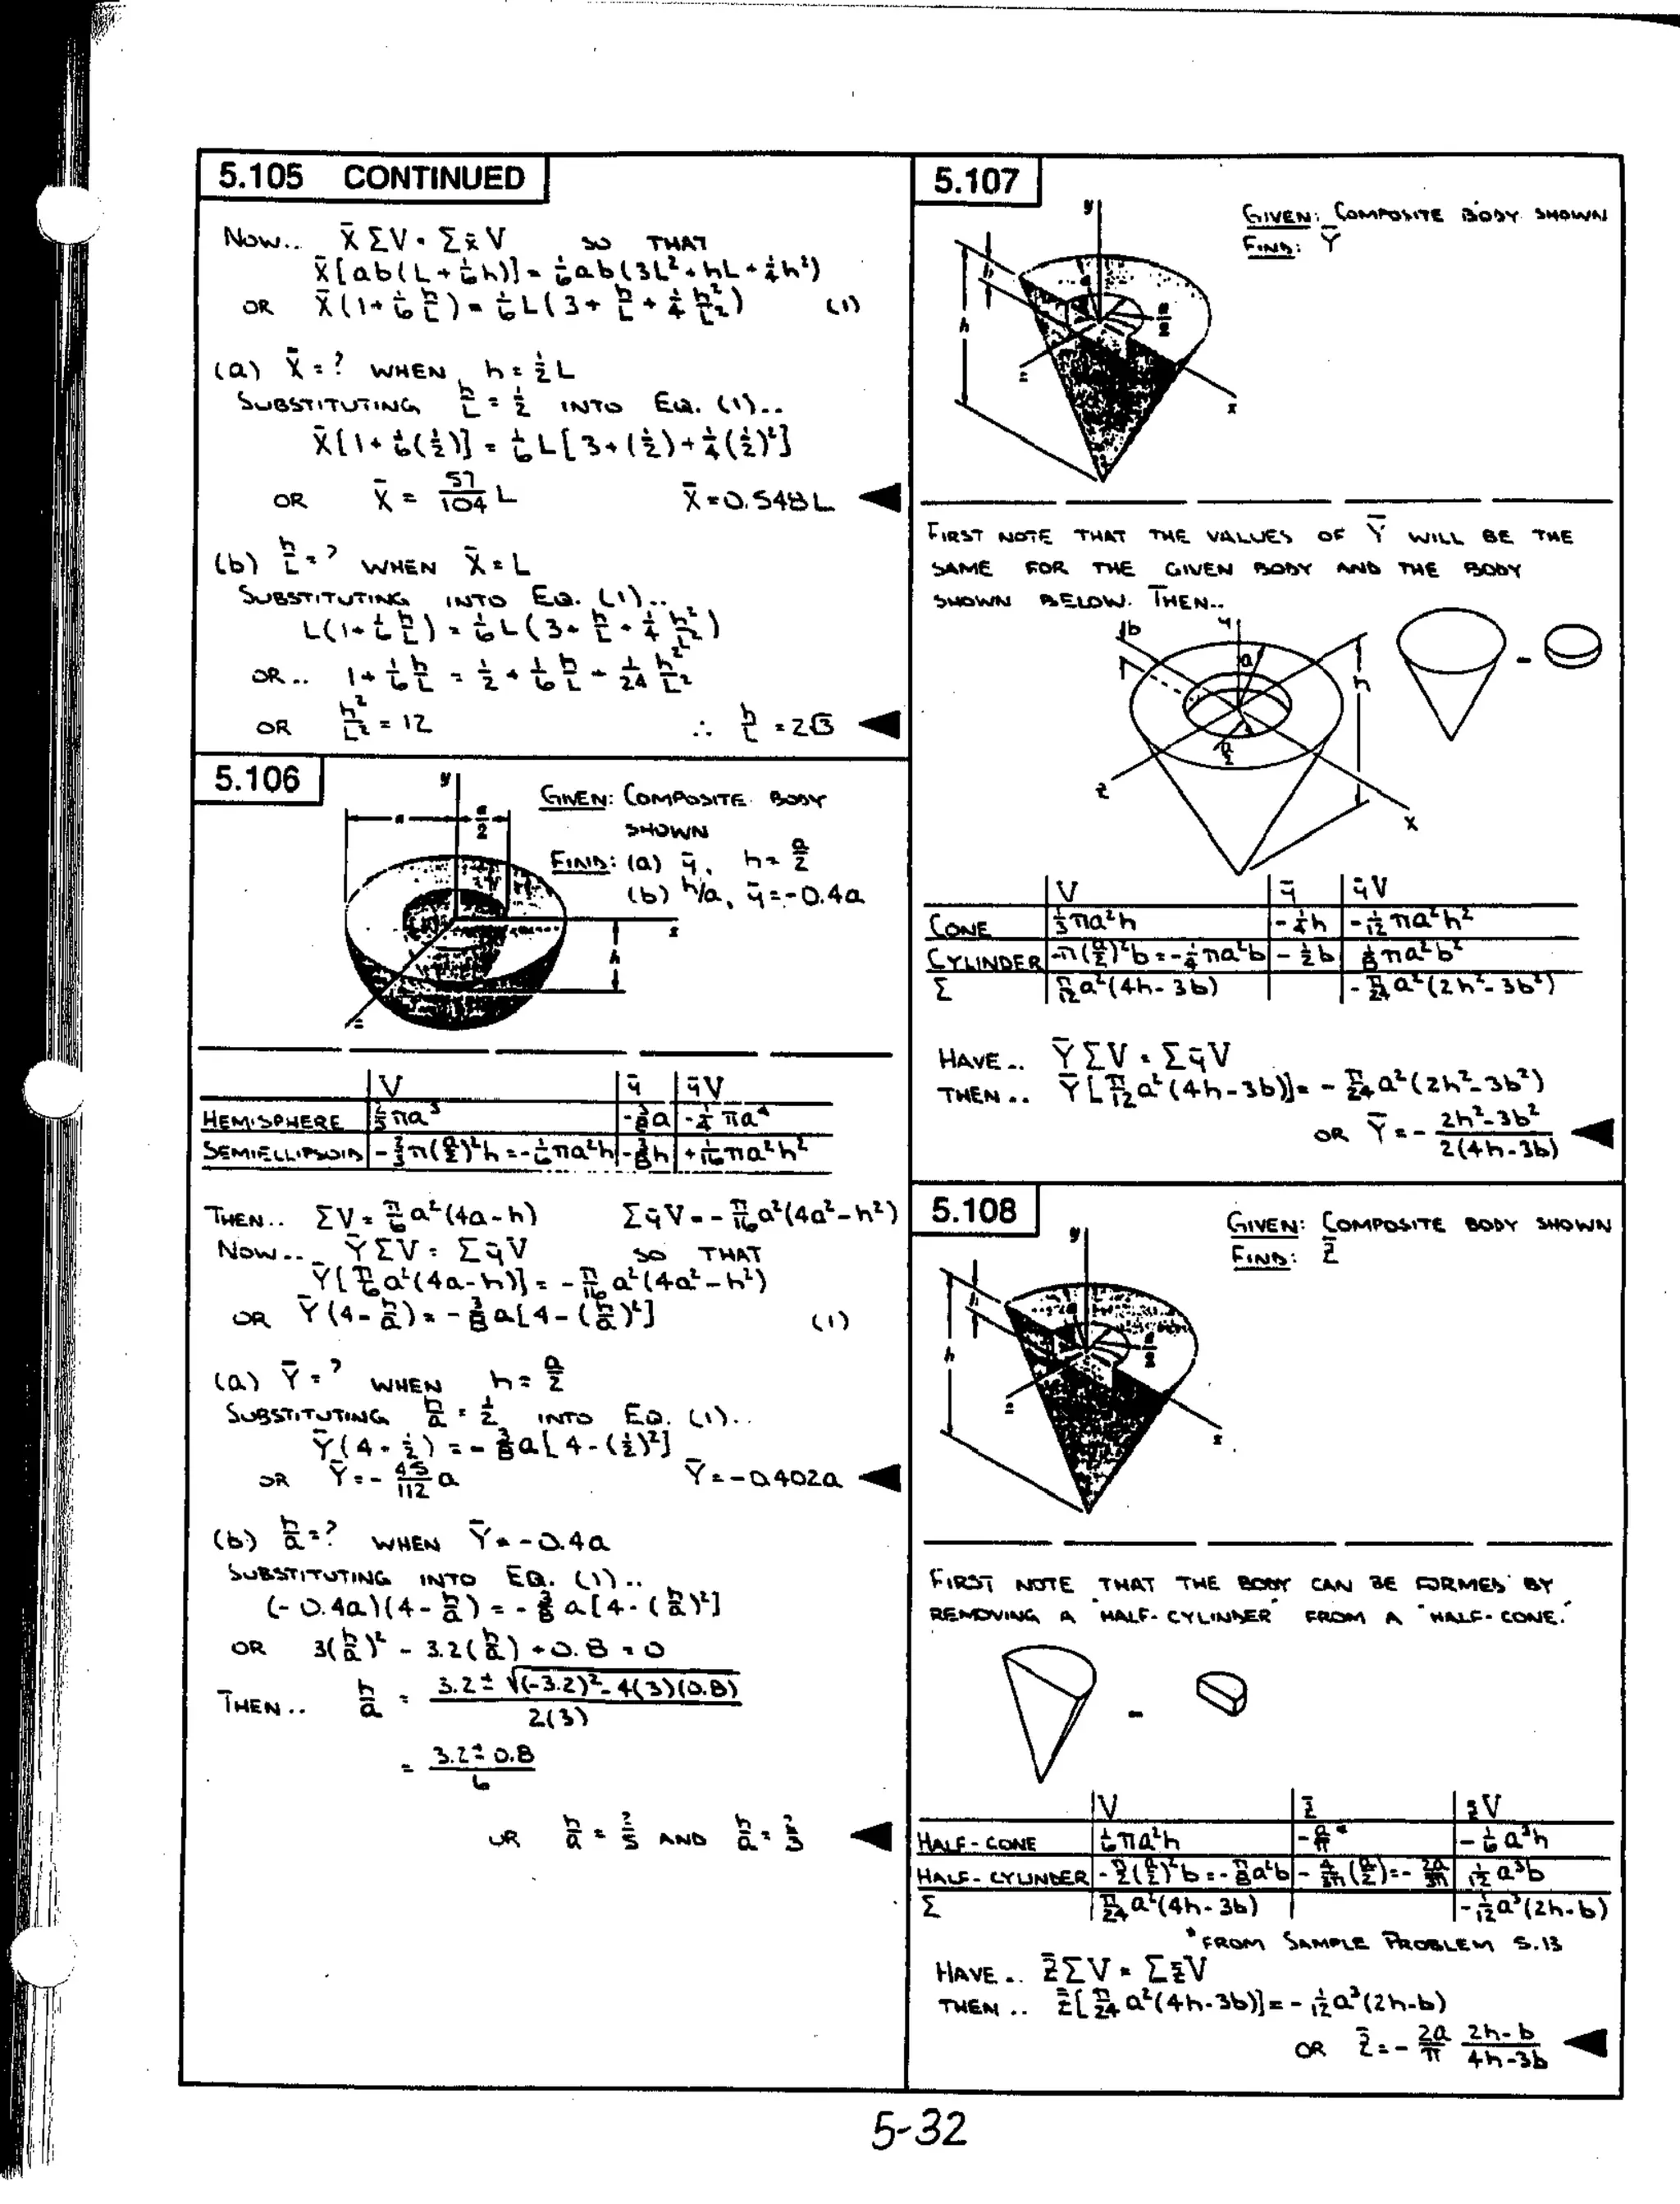 5.105 CONTINUED
NOW.. X̄ΣV = Σx̄V SO THAT
X̄[ab(L + 1/6 h)] = 1/6 ab(3L² + hL + 1/4 h²)
OR X̄(1 + 1/6 h/L) = 1/6 L(3 + h/L + 1/4 h²/L²) (1)
(a) X̄ = ? WHEN h = 1/2 L
SUBSTITUTING h/L = 1/2 INTO EQ. (1)..
X̄[1 + 1/6(1/2)] = 1/6 L[3 + (1/2) + 1/4(1/2)²]
OR X̄ = 57/104 L X̄ = 0.548L ◄
(b) h/L = ? WHEN X̄ = L
SUBSTITUTING INTO EQ. (1)..
L(1 + 1/6 h/L) = 1/6 L(3 + h/L + 1/4 h²/L²)
OR.. 1 + 1/6 h/L = 1/2 + 1/6 h/L + 1/24 h²/L²
OR h²/L² = 12 ∴ h/L = 2√3 ◄
5.106
GIVEN: COMPOSITE BODY
SHOWN
FIND: (a) ȳ, h = a/2
(b) h/a, ȳ = -0.4a
y
a a/2
x
h
z
V ȳ ȳV
HEMISPHERE 2/3 πa³ -3/8 a -1/4 πa⁴
SEMIELLIPSOID -2/3 π(a/2)²h = -1/6 πa²h -3/8 h +1/16 πa²h²
THEN.. ΣV = π/6 a²(4a-h) ΣȳV = -π/16 a²(4a²-h²)
NOW.. ȲΣV = ΣȳV SO THAT
Ȳ[π/6 a²(4a-h)] = -π/16 a²(4a²-h²)
OR Ȳ(4 - h/a) = -3/8 a[4 - (h/a)²] (1)
(a) Ȳ = ? WHEN h = a/2
SUBSTITUTING h/a = 1/2 INTO EQ. (1)..
Ȳ(4 - 1/2) = -3/8 a[4 - (1/2)²]
OR Ȳ = -45/112 a Ȳ = -0.402a ◄
(b) h/a = ? WHEN Ȳ = -0.4a
SUBSTITUTING INTO EQ. (1)..
(-0.4a)(4 - h/a) = -3/8 a[4 - (h/a)²]
OR 3(h/a)² - 3.2(h/a) + 0.8 = 0
THEN.. h/a = (3.2 ± √((-3.2)² - 4(3)(0.8))) / 2(3)
= (3.2 ± 0.8)/6
OR h/a = 2/5 AND h/a = 2/3 ◄
5.107
GIVEN: COMPOSITE BODY SHOWN
FIND: Ȳ
y
b
a
a/2
h
z
x
FIRST NOTE THAT THE VALUES OF Ȳ WILL BE THE
SAME FOR THE GIVEN BODY AND THE BODY
SHOWN BELOW. THEN..
b y
a
h
a/2
z
x
-
V ȳ ȳV
CONE 1/3 πa²h -1/4 h -1/12 πa²h²
CYLINDER -π(a/2)²b = -1/4 πa²b -1/2 b 1/8 πa²b²
Σ π/12 a²(4h-3b) -π/24 a²(2h²-3b²)
HAVE.. ȲΣV = ΣȳV
THEN.. Ȳ[π/12 a²(4h-3b)] = -π/24 a²(2h²-3b²)
OR Ȳ = -(2h²-3b²)/(2(4h-3b)) ◄
5.108
GIVEN: COMPOSITE BODY SHOWN
FIND: Z̄
y
b
a
a/2
h
z
x
FIRST NOTE THAT THE BODY CAN BE FORMED BY
REMOVING A "HALF-CYLINDER" FROM A "HALF-CONE."
-
V z̄ z̄V
HALF-CONE 1/6 πa²h -a/π * -1/6 a³h
HALF-CYLINDER -π/2(a/2)²b = -π/8 a²b -4/3π(a/2) = -2a/3π 1/12 a³b
Σ π/24 a²(4h-3b) -1/12 a³(2h-b)
*FROM SAMPLE PROBLEM 5.13
HAVE.. Z̄ΣV = Σz̄V
THEN.. Z̄[π/24 a²(4h-3b)] = -1/12 a³(2h-b)
OR Z̄ = -2a/π (2h-b)/(4h-3b) ◄
5-32